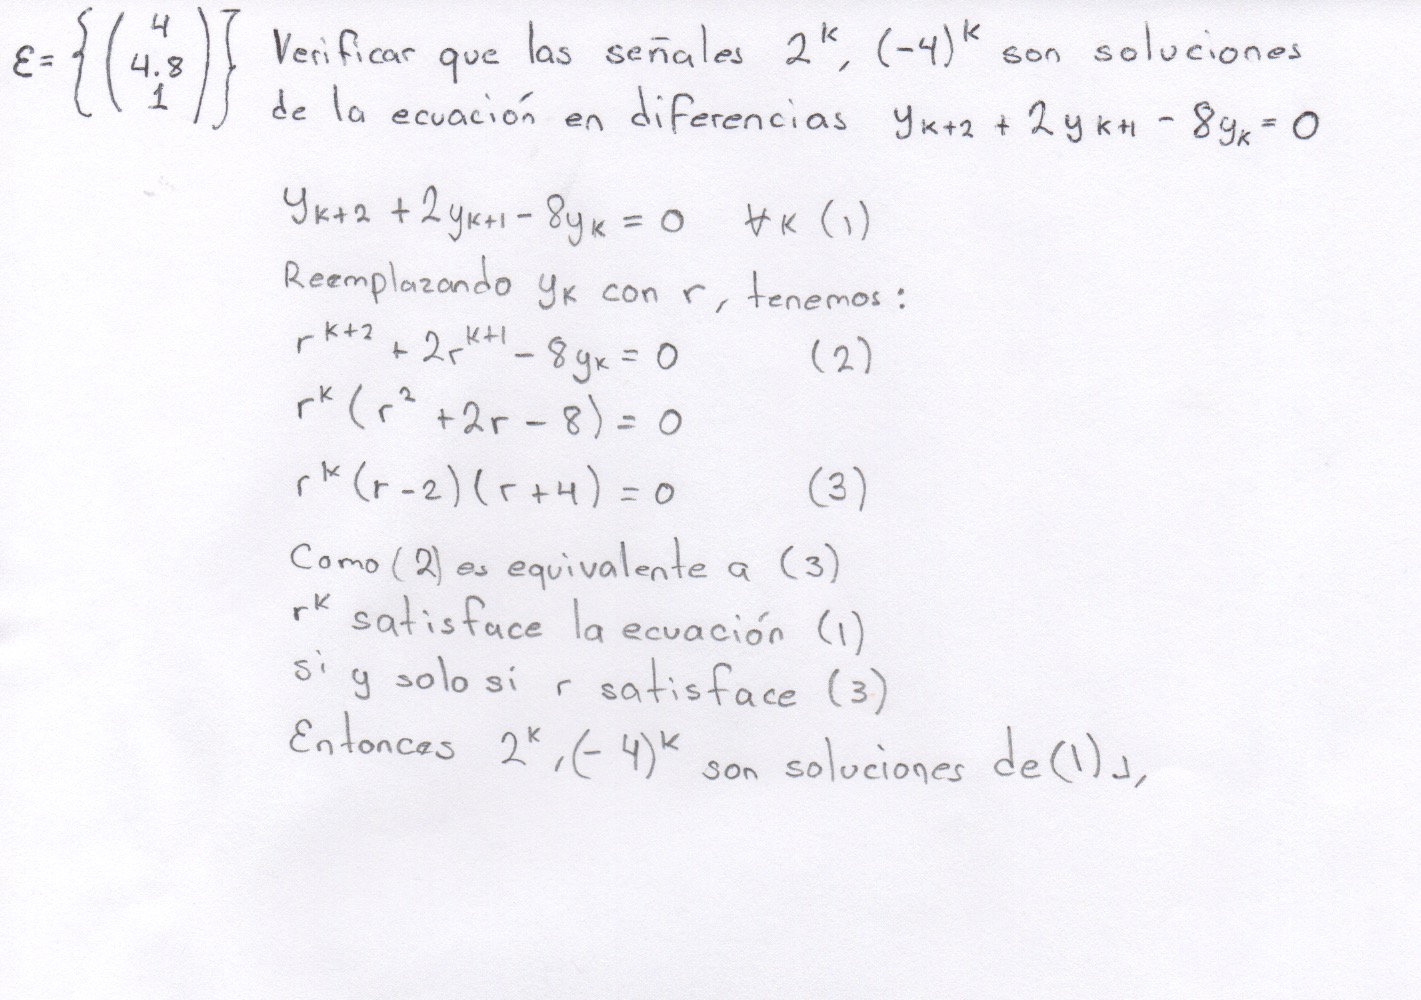 ε = {(4 4.8 1)} Verificar que las señales 2^k, (-4)^k son soluciones
de la ecuación en diferencias y_{k+2} + 2y_{k+1} - 8y_k = 0
y_{k+2} + 2y_{k+1} - 8y_k = 0 ∀k (1)
Reemplazando y_k con r, tenemos:
r^{k+2} + 2r^{k+1} - 8y_k = 0 (2)
r^k (r^2 + 2r - 8) = 0
r^k (r-2)(r+4) = 0 (3)
Como (2) es equivalente a (3)
r^k satisface la ecuación (1)
si y solo si r satisface (3)
Entonces 2^k, (-4)^k son soluciones de (1)